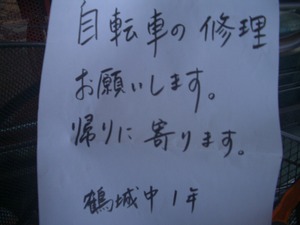 自転車の修理
お願いします。
帰りに寄ります。
鶴城中1年